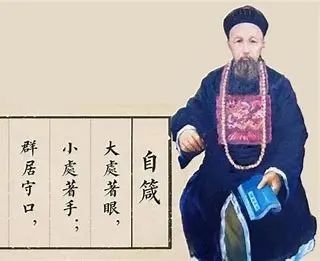 自箴
大處著眼，
小處著手；
群居守口，